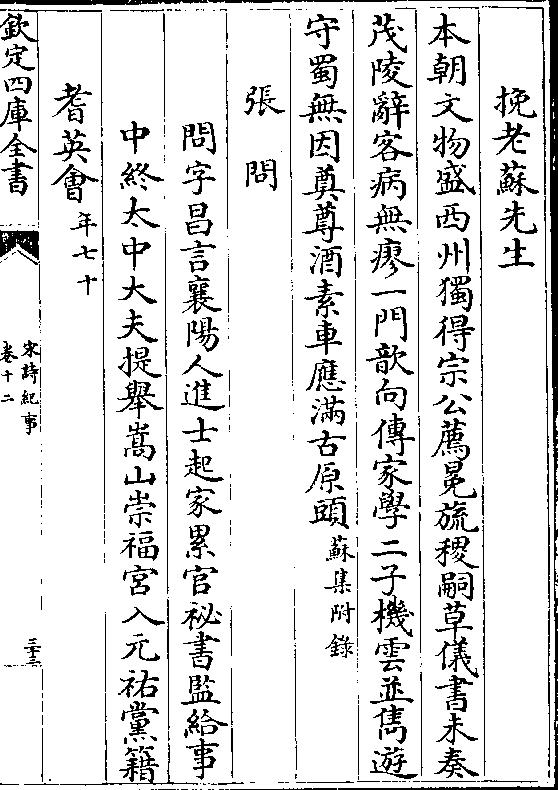 挽老蘇先生
本朝文物盛西州獨得宗公薦冕旒稷嗣草儀書未奏
茂陵辭客病無瘳一門歆向傳家學二子機雲並雋遊
守蜀無因奠尊酒素車應滿古原頭蘇集附錄
張問
問字昌言襄陽人進士起家累官祕書監給事
中終太中大夫提舉嵩山崇福宮入元祐黨籍
耆英會年七十
欽定四庫全書
宋詩紀事
卷十二
三十三